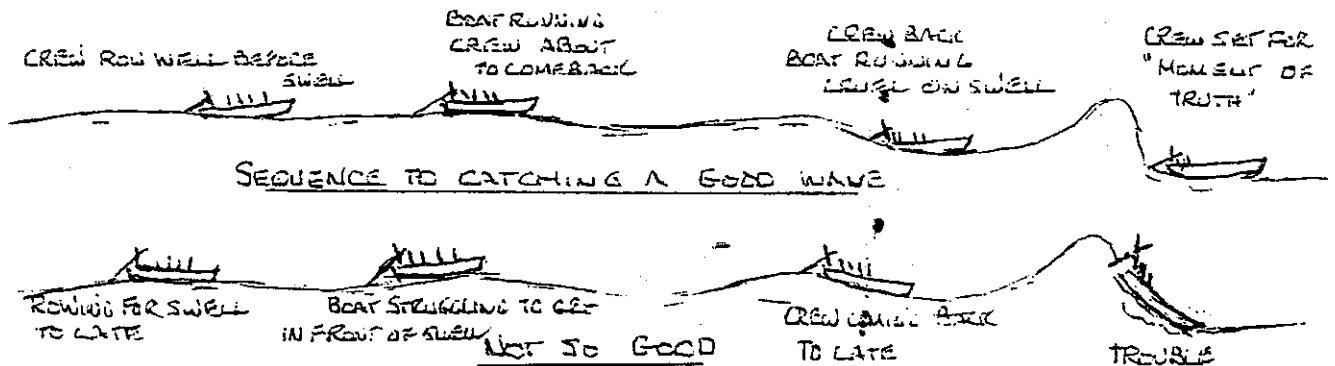 CREW ROW WELL BEFORE
SWELL
BOAT RUNNING
CREW ABOUT
TO COMEBACK
CREW BACK
BOAT RUNNING
LEVEL ON SWELL
CREW SET FOR
"MOMENT OF
TRUTH"
SEQUENCE TO CATCHING A GOOD WAVE
ROWING FOR SWELL
TO LATE
BOAT STRUGGLING TO GET
IN FRONT OF SWELL
CREW COMING BACK
TO LATE
TROUBLE
NOT SO GOOD